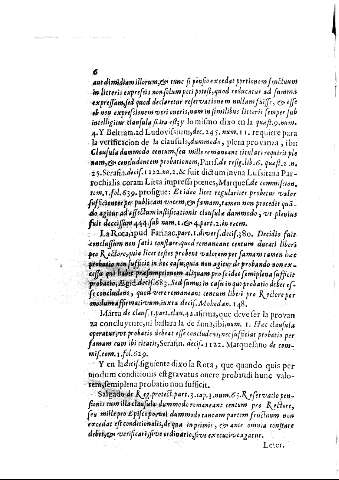 6
aut dimidiam illorum, & tunc si pensio excedat portionem fructuum
in litteris expressis non solum peti potest, quod reducatur ad summã
expressam, sed quod declaretur reservationem nullam fuisse, & esse
ob non expressionem veri valoris, nam in similibus litteris semper sub
intelligitur clausula si ita est; y lo mismo dixo en la quæst. 9. num.
4. Y Beltram. ad Ludovisium, dec. 245. num. 11. requiere para
la verificacion de la clausula, dummodo, plena provança, ibi:
Clausula dummodo centum, seu mille remaneant titulari requirit ple
nam, & concludentem probationem, Paris. de resig. lib. 6. quæst. 2. n.
25. Serafin. decis. 1122. nu. 2. & fuit dictum in una Lusitana Par-
rochialis coram Litta impressa penes, Marques. de commission.
tom. 1. fol. 639. prosigue: Et idee licet regulariter probetur valor
sufficienter per publicam vocem, & famam, tamen non procedit quã-
do agitur ad effectum iustificationis clausulæ dummodo, ut plenius
fuit decissum 444. sub num. 1. & 4. part. 2. in recen.
La Rota, apud Farinac. part. 1. divers. decis. 380. Decidio fuit
conclusium non satis constare, quod remaneant centum ducati liberi
pro Rectore, quia licet testes probent valorem per famam tamen hæc
probatio non sufficit in hoc casu, quia non agitur de probando non ex-
cessu qui habet præsumptionem aliquam pro se ideo semiplena sufficit
probatio, Egid. decis. 683. Sed sumus in casu in quo probatio debet es-
se concludens, quod verè remaneant centum liberi pro Rectore per
modum affirmativum, iuxta decis. Mohedan. 148.
Marta de claus. 1. part. claus. 42. afirma, que deve ser la provan
za concluyente, ni bastarà la de fama, ibi, num. 1. Hæc clausula
operatur, ut probatio debeat esse concludens, nec sufficiat probatio per
famam cum ibi citatis, Serafin. decis. 1122. Marquesano de com-
mis. com. 1. fol. 629.
Y en la decis. siguiente dixo la Rota, que quando quis per
modum conditionis est gravatus onere probandi hunc valo-
rem, semiplena probatio non sufficit.
Salgado de Reg. protect. part. 3. cap. 3. num. 63. Reservatio pen-
sionis cum illa clausula dummodo remaneant centum pro Rectore,
seu mille pro Episcopo, vel dummodo tantam partem fructuum non
excedat est conditionalis, de qua in primis, & ante omnia constare
debet, & verificari, sive ordinariè, sive executivè agatur.
Loter.